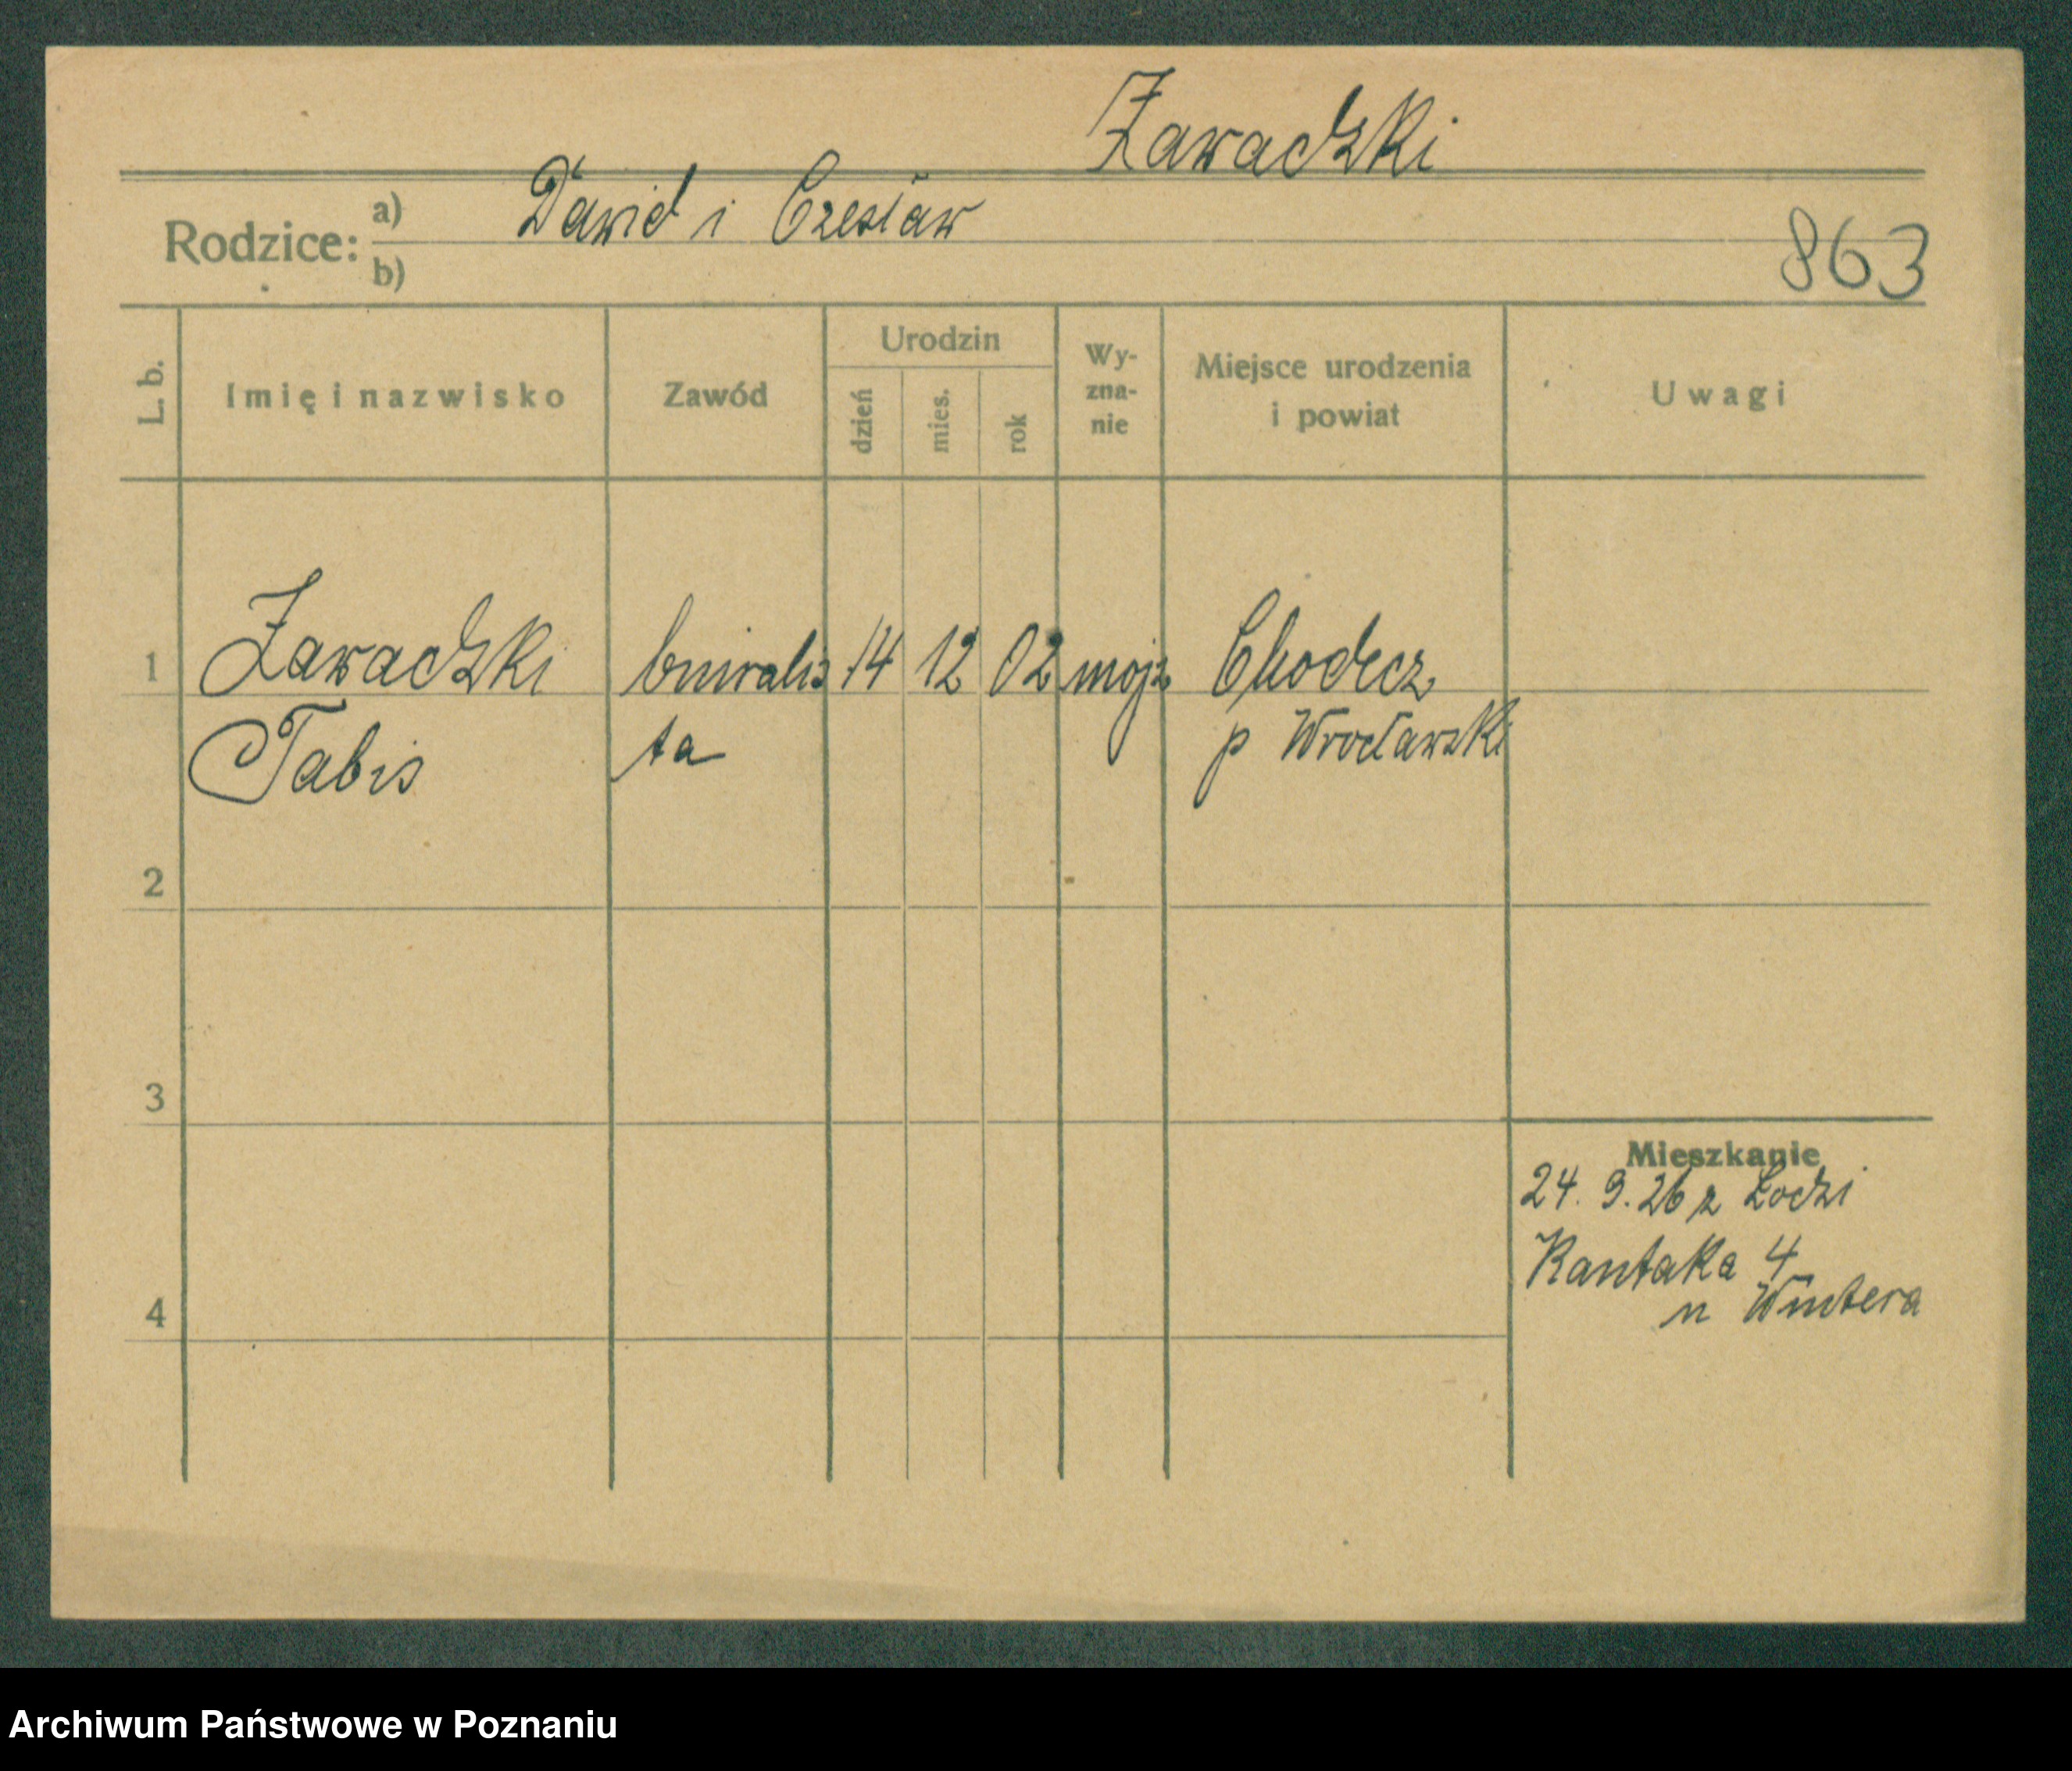 Zawadzki
Rodzice: a) Dawid i Czesław
b)
863
L. b.
Imię i nazwisko
Zawód
Urodzin
dzień
mies.
rok
Wy-
zna-
nie
Miejsce urodzenia
i powiat
Uwagi
1 Zawadzki 14 12 02 mojż Chodecz
Tabis ta p Wrocławski
2
3
Mieszkanie
24. 9. 26 z Łodzi
Kantaka 4
u Wintera
4
Archiwum Państwowe w Poznaniu